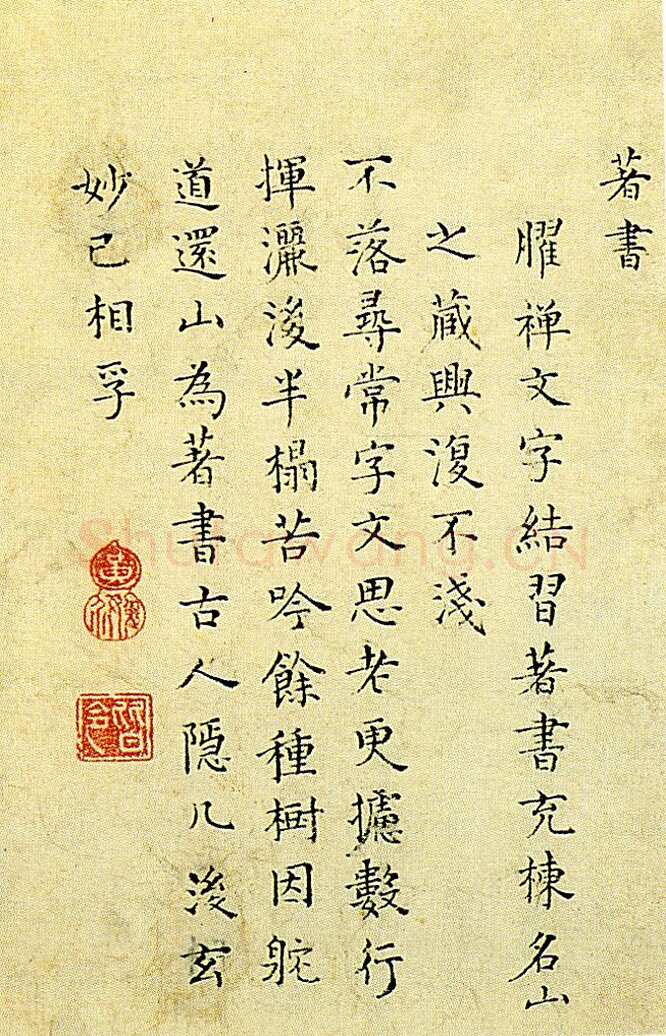 著書
臞禪文字結習著書充棟名山
之藏興復不淺
不落尋常字文思老更攄數行
揮灑後半榻苦吟餘種樹因舵
道還山為著書古人隱几後玄
妙已相孚
Shufawang.CN